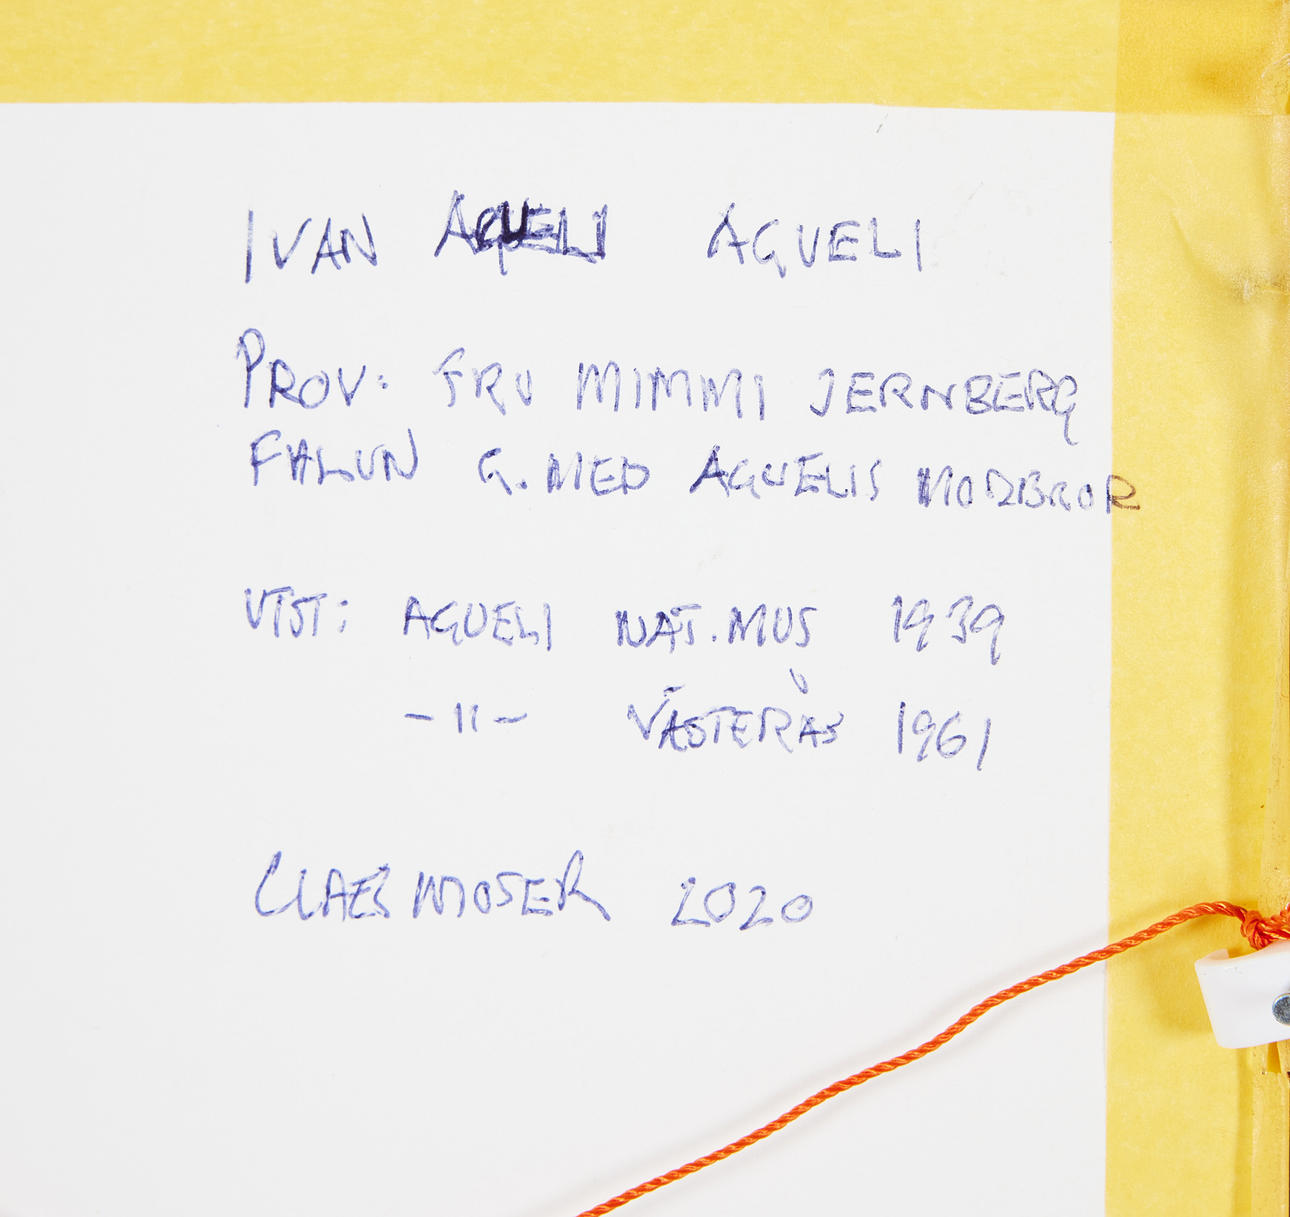 IVAN AGUELI AGUELI
PROV: FRU MIMMI JERNBERG
FALUN G. MED AGUELIS MORBROR
UTST: AGUELI NAT. MUS 1939
-11- VÄSTERÅS 1961
CLAES MOSER 2020